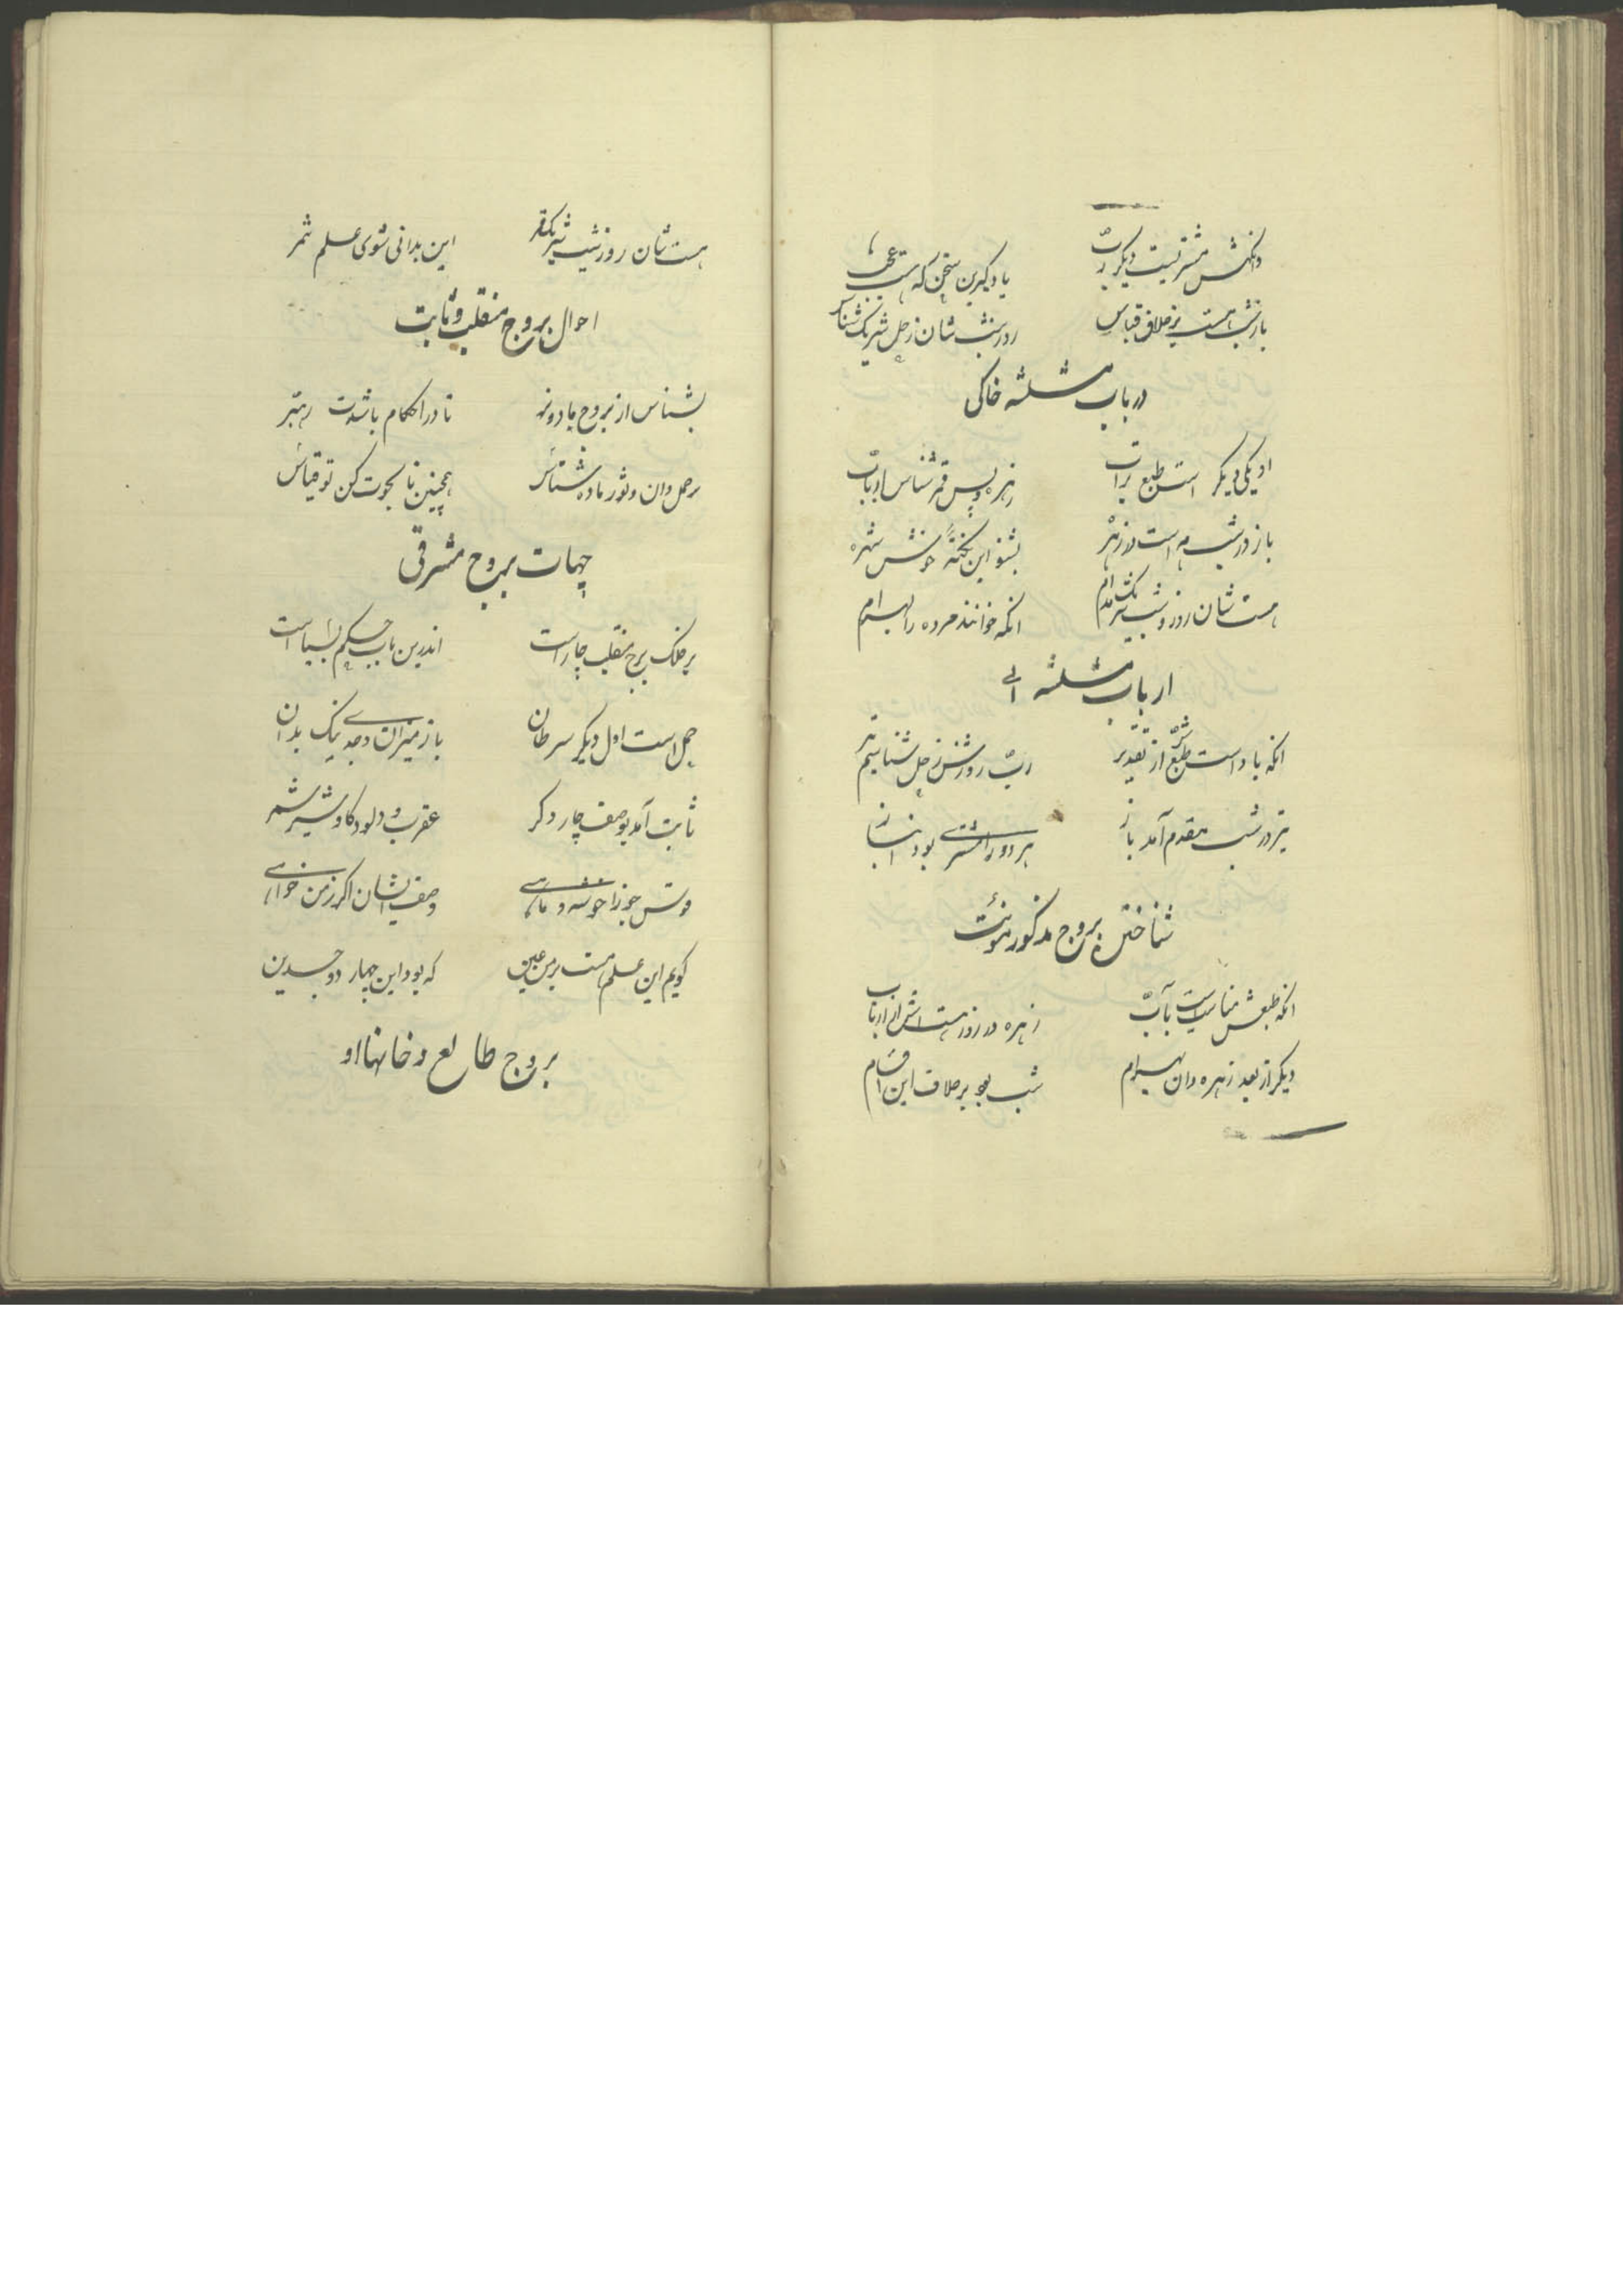 وانکهش مشتریست دیکر ربّ یادکیر این سخن که هست عجب
باز شب هست بر خلاف قیاس روز و شب شان زحل شریک شناس
در باب مثلثه خاکی
زهره و پس قمر شناس ارباب
باز در شب مه است و زهره بشنو این نکتهٔ خوش شهره
هست شان روز و شب شریک مدام انکه خوانند مرو را بهرام
ارباب مثلثه
انکه باد است طبعش از تقدیر ربّ روزش زحل شناسم تیر
تیر در شب مقدم آمد باز هر دو را مشتری بود انباز
شناختن بروج مذکور مونث
انکه طبعش مناسبت بآب زهره در روز هستش از ارباب
دیکر از بعد زهره دان بهرام شب بود بر خلاف این اقسام
هست شان روز شب شریک قمر این بدانی شوی علم ثمر
احوال بروج منقلب و ثابت
بشناس از بروج ماده و نر تا در احکام باشدت رهبر
نر حمل دان و ثور ماده شناس همچنین تا بحوت کن تو قیاس
جهات بروج مشرقی
بر فلک برج منقلب چار است اندرین باب حکم بسیار است
حمل است اول دیکر سرطان باز میزان و جدی نیک بدان
ثابت آمد بوصف چار دکر عقرب و دلو و کاو و شیر شمر
قوس جوزا خوشه و ماهی وصف ایشان اکر ز من خواهی
کویم این علم هست بر من عین که بود این چهار دو جسدین
بروج طالع و خانهااو